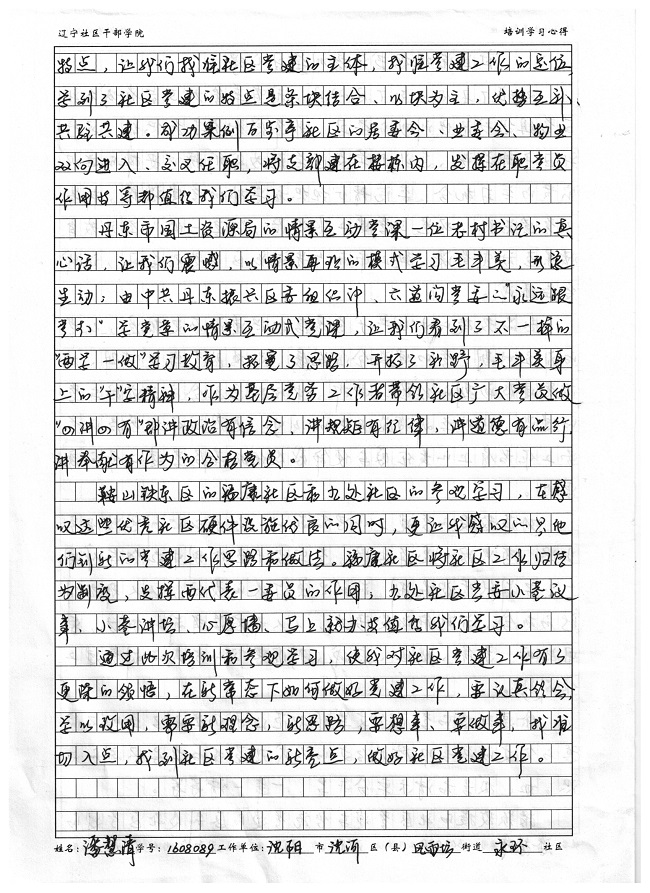 辽宁社区干部学院 培训学习心得
特点，让我们找准社区党建的主体，找准党建工作的定位，
学到了社区党建的特点是条块结合、以块为主，优势互补、
共驻共建。成功案例万步亭社区的居委会、业委会、物业
双向进入、交叉任职，将支部建在楼栋内，发挥在职党员
作用等等都值得我们学习。
丹东市国土资源局的情景互动党课一位老村书记的真
心话，让我们震撼，以情景再现的模式学习毛丰美，形象
生动；由中共丹东振兴区委组织部、六道沟党委“永远跟
党走”学党章的情景互动式党课，让我们看到了不一样的
“两学一做”学习教育，拓宽了思路，开拓了视野，毛丰美身
上的“干”字精神，作为基层党务工作者带领社区广大党员做
“四讲四有”即讲政治有信念、讲规矩有纪律，讲道德有品行
讲奉献有作为的合格党员。
鞍山铁东区的福康社区和办处社区的参观学习，在感
叹这些优秀社区硬件设施优良的同时，更让我感叹的是他
们新新的党建工作思路和做法。福康社区将社区工作归结
为制度，发挥两代表一委员的作用，办处社区党委小巷议
事、小巷讲坛、心愿墙、马上就办共值得我们学习。
通过此次培训和参观学习，使我对社区党建工作有了
更深的领悟，在新常态下如何做好党建工作，要认真领会，
学以致用，需要新理念，新思路，要想事、要做事，找准
切入点，找到社区党建的新亮点，做好社区党建工作。
姓名：潘慧清 学号：1608089 工作单位：沈阳 市 沈河 区（县） 风雨坛 街道 永环 社区